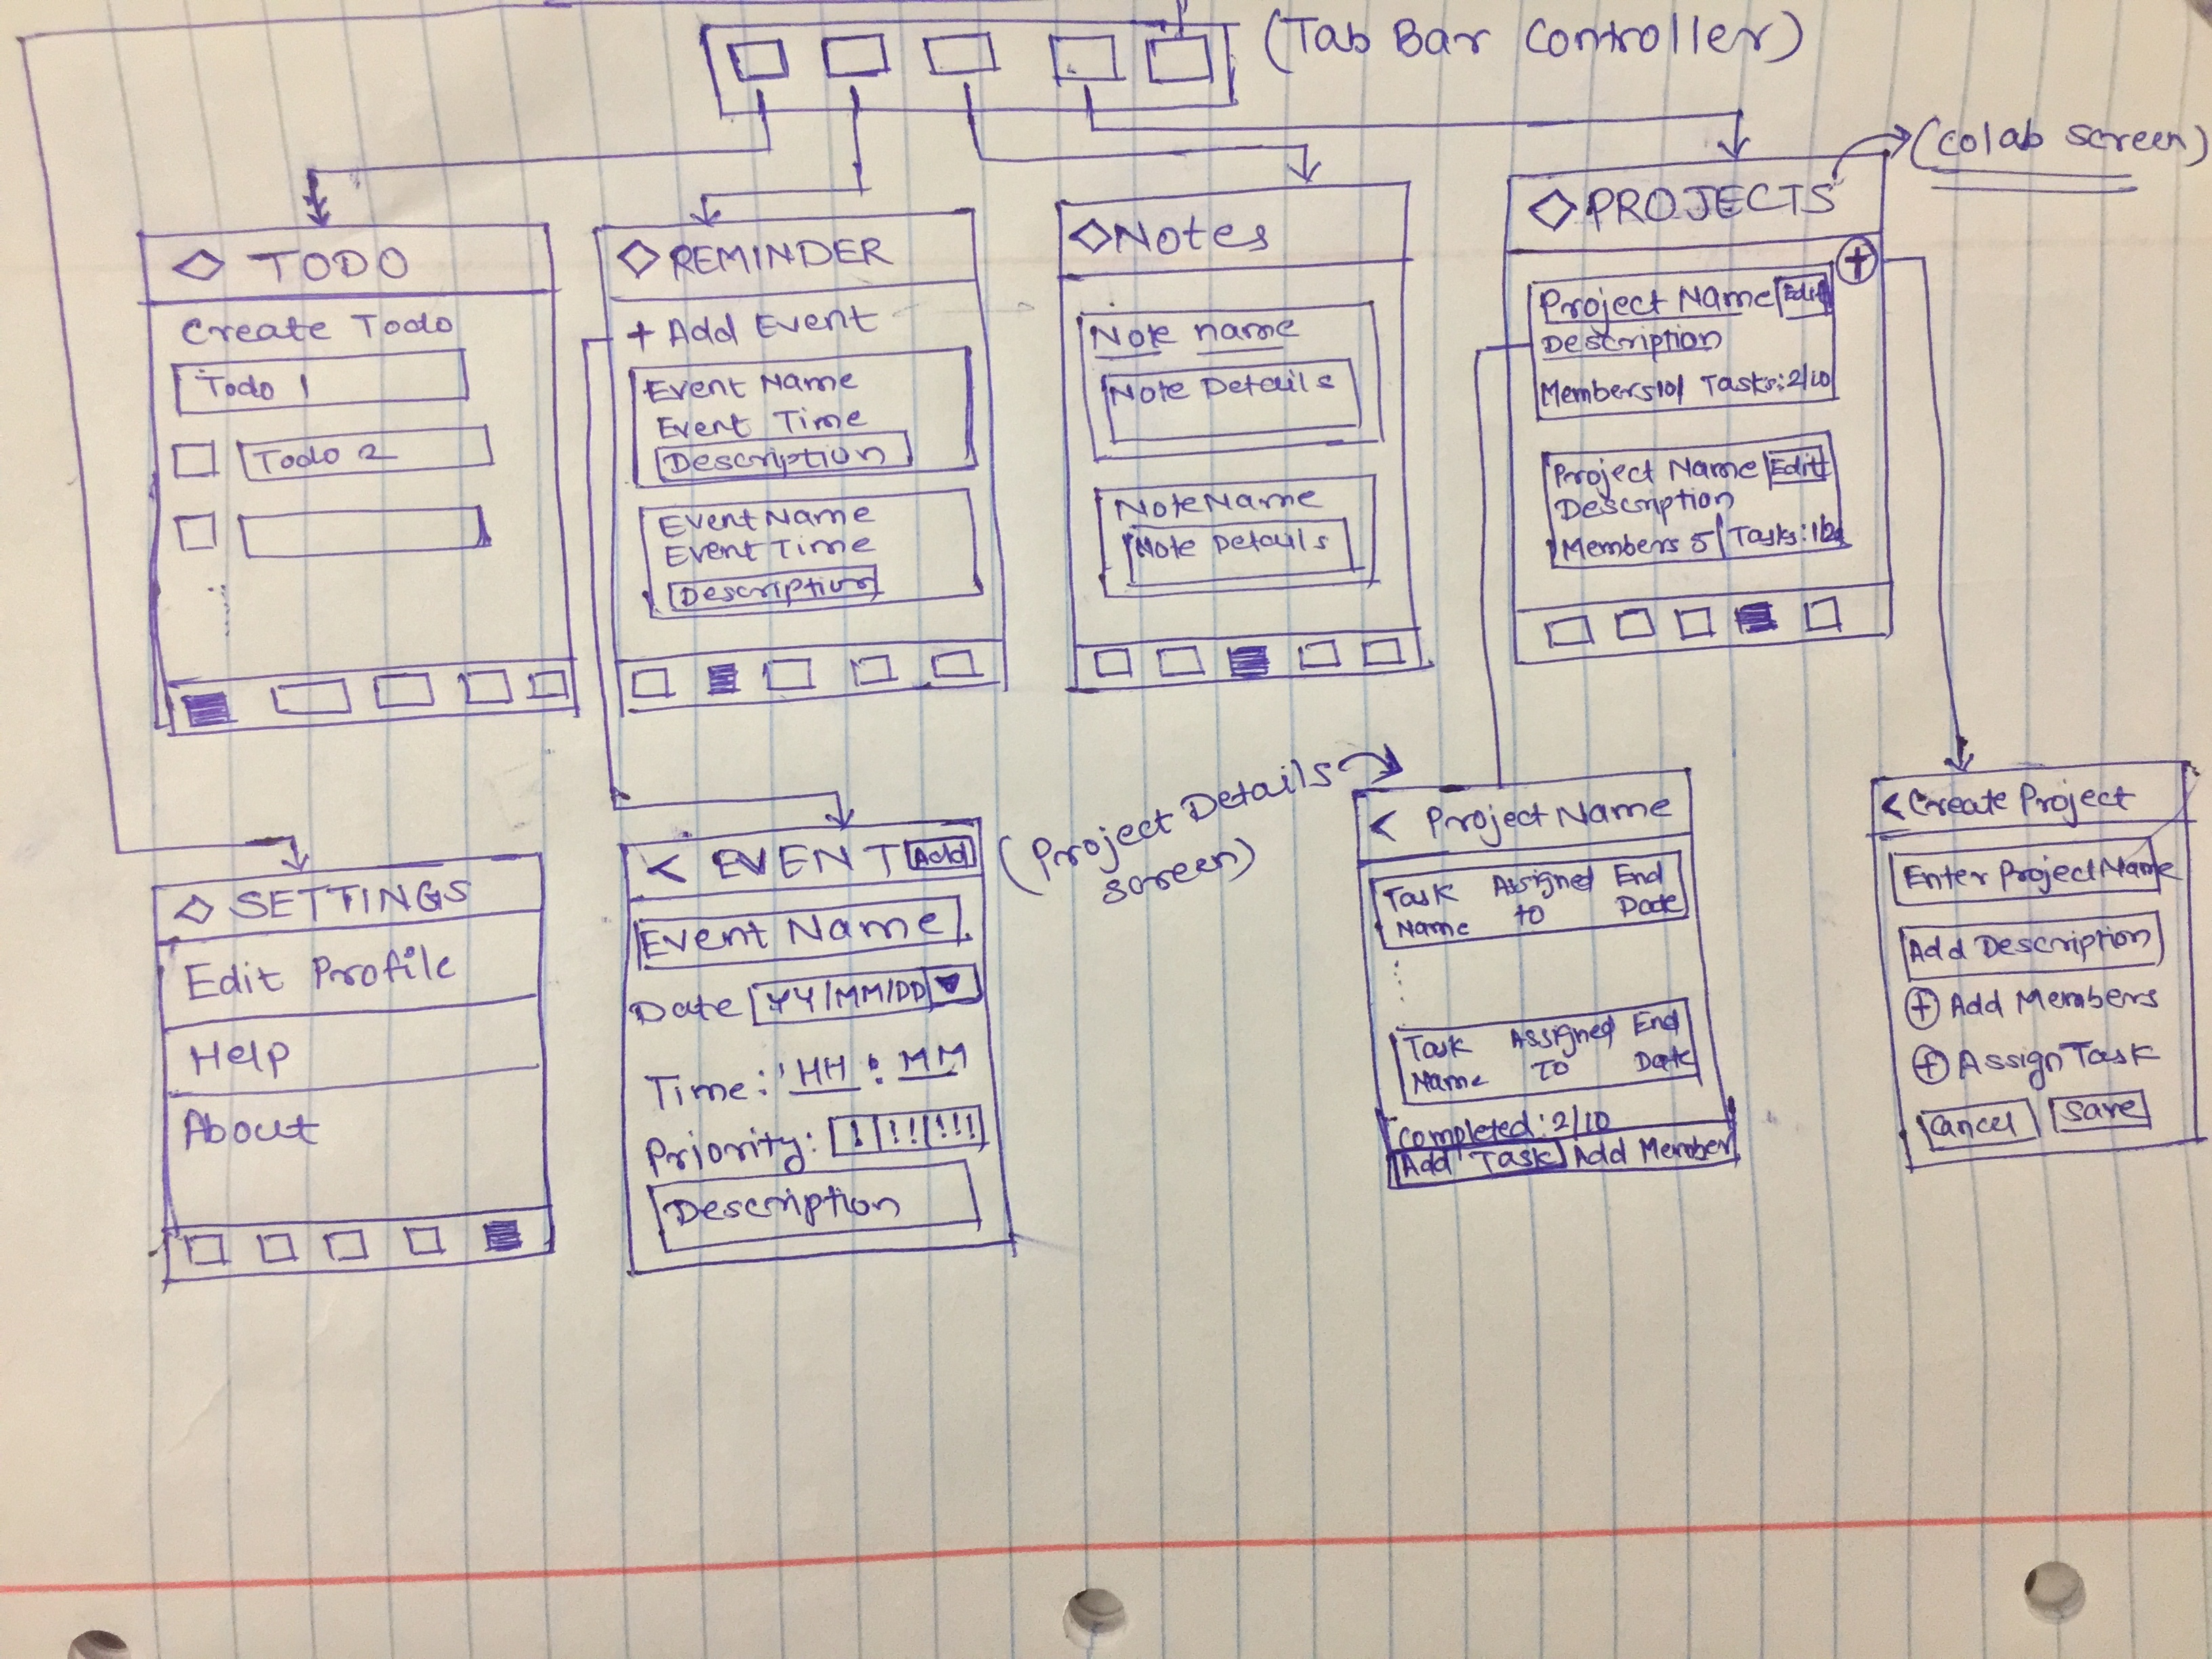 (Tab Bar Controller)
(colab screen)
TODO
Create Todo
Todo 1
Todo 2
REMINDER
+ Add Event
Event Name
Event Time
Description
Event Name
Event Time
Description
Notes
Note name
Note Details
Note Name
Note Details
PROJECTS
+
Project Name Edit
Description
Members 10/ Tasks: 2/10
Project Name Edit
Description
Members 5/ Tasks:
SETTINGS
Edit Profile
Help
About
< EVENT Add
Event Name
Date YY/MM/DD
Time: HH : MM
Priority: ! !! !!!
Description
(Project Details
screen)
< Project Name
Task Assigned End
Name to Date
Task Assigned End
Name To Date
Completed: 2/10
Add Task Add Member
< Create Project
Enter Project Name
Add Description
+ Add Members
+ Assign Task
Cancel Save